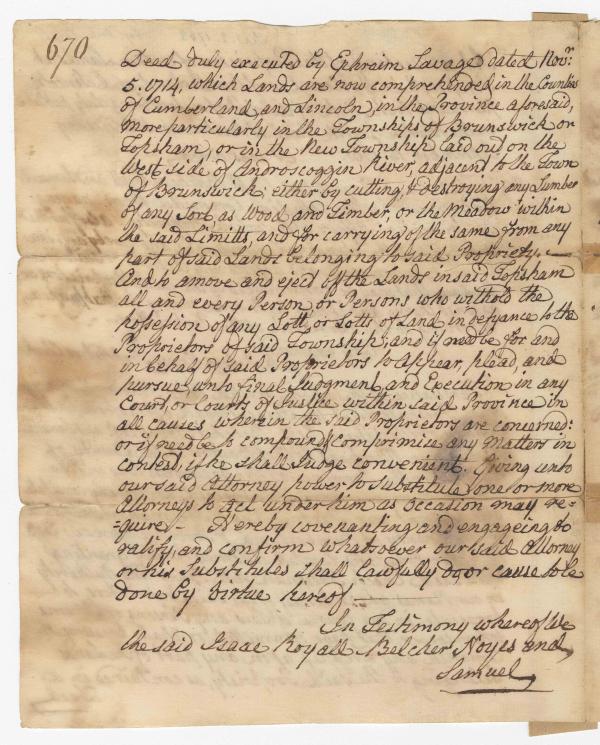 670
Deed duly executed by Ephraim Savage dated Novr.
5. 1714, which Lands are now comprehended in the Counties
of Cumberland and Lincoln, in the Province aforesaid,
more particularly in the Townships of Brunswick or
Topsham, or in the New Township laid out on the
West side of Androscoggin River, adjacent to the Town
of Brunswick either by cutting, & destroying any Lumber
of any Sort as Wood and Timber, or the Meadow within
the said Limitts, and for carrying of the same from any
part of said Lands belonging to said Propriety. —
And to amove and eject off the Lands in said Topsham
all and every Person, or Persons who withold the
possession of any Lott, or Lotts of Land, in defyance to the
Proprietors of said Township, and if need be for and
in behalf of said Proprietors to appear, plead, and
pursue, unto final Judgment, and Execution in any
Court, or Courts of Justice within said Province in
all causes wherein the said Proprietors are concerned:
or if need be to compound & comprimice any matters in
contest, if he shall Judge convenient. Giving unto
our said Attorney power to Substitute one or more
Attorneys to act under him as Occasion may re=
=quire, — Hereby covenanting and engageing to
ratify, and confirm whatsoever our said Attorney
or his Substitutes shall Lawfully do, or cause to be
done by Virtue hereof —
In Testimony whereof We
the said Isaac Royall Belcher Noyes and,
Samuel,